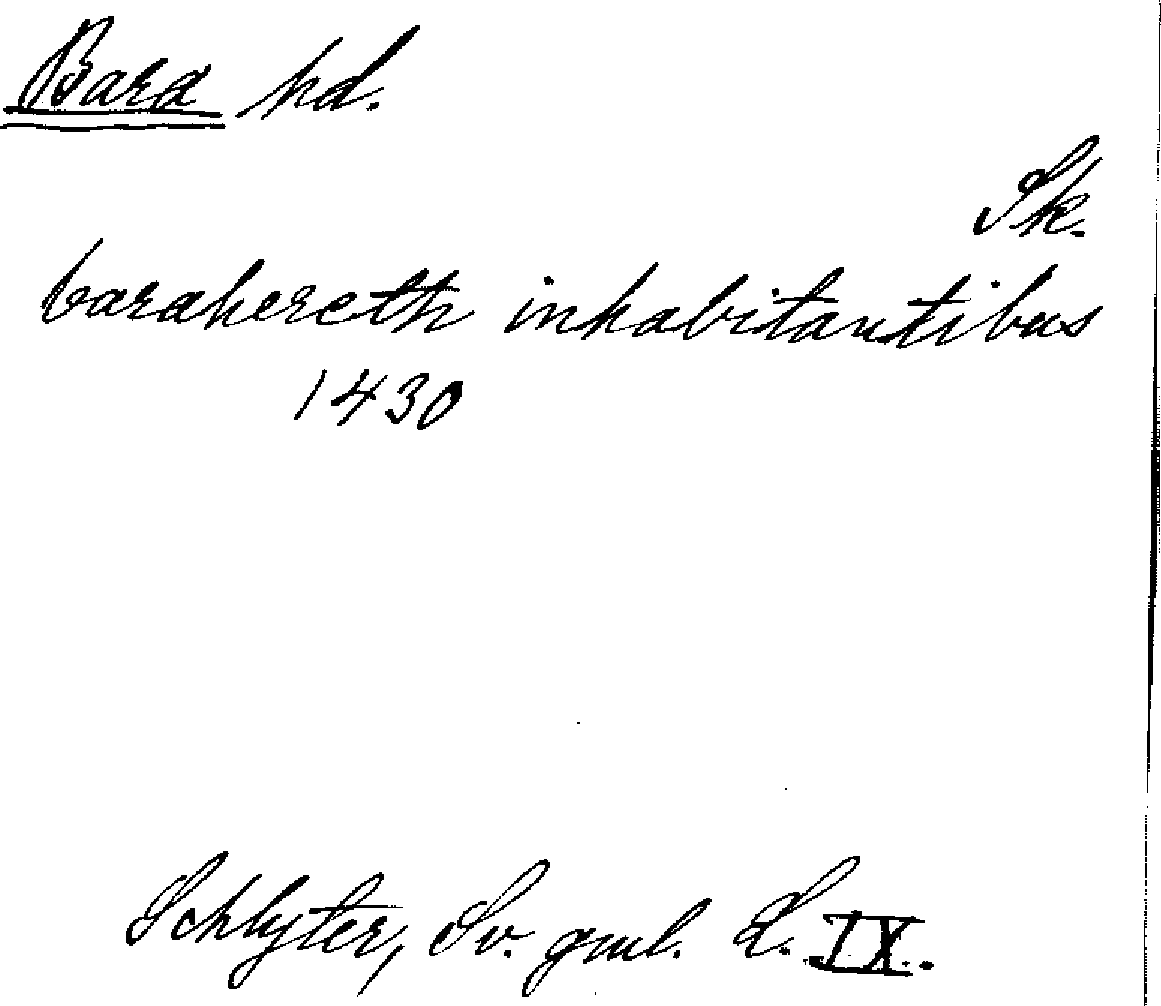 Bara hd.
Sk.
barahereth inhabitantibus
1430
Schlyter, Sv. gml. L. IX.